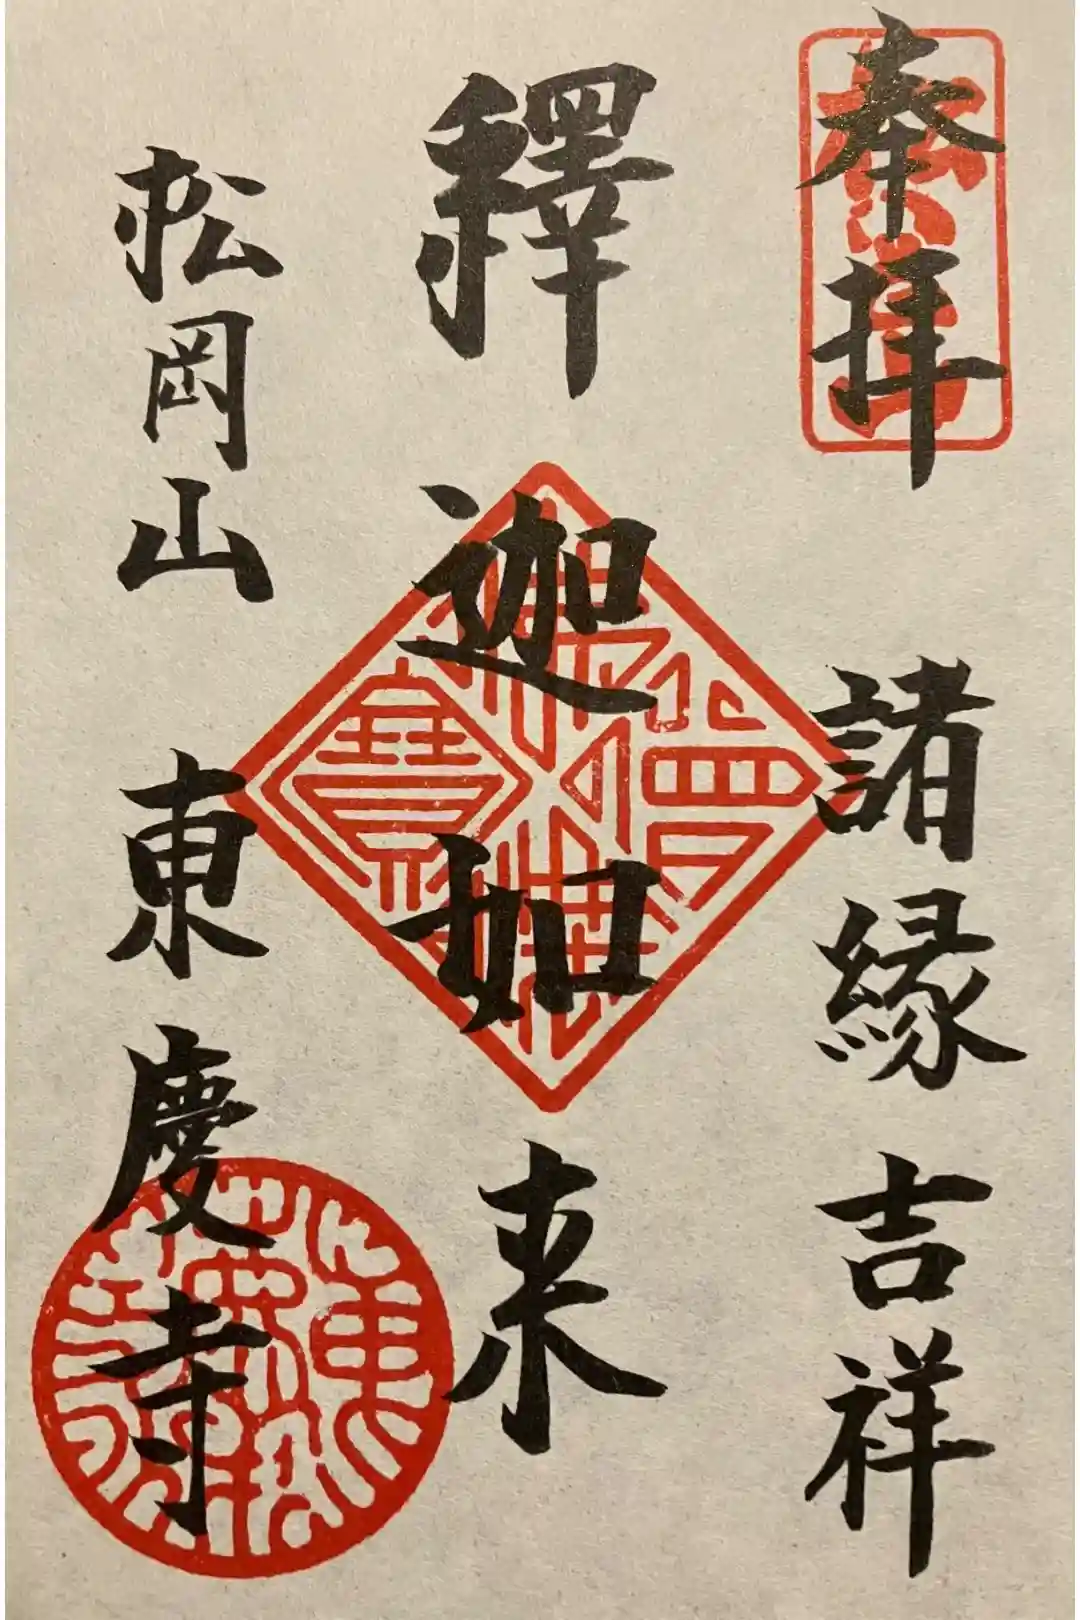 奉拝　諸縁吉祥
釋迦如来
松岡山　東慶寺